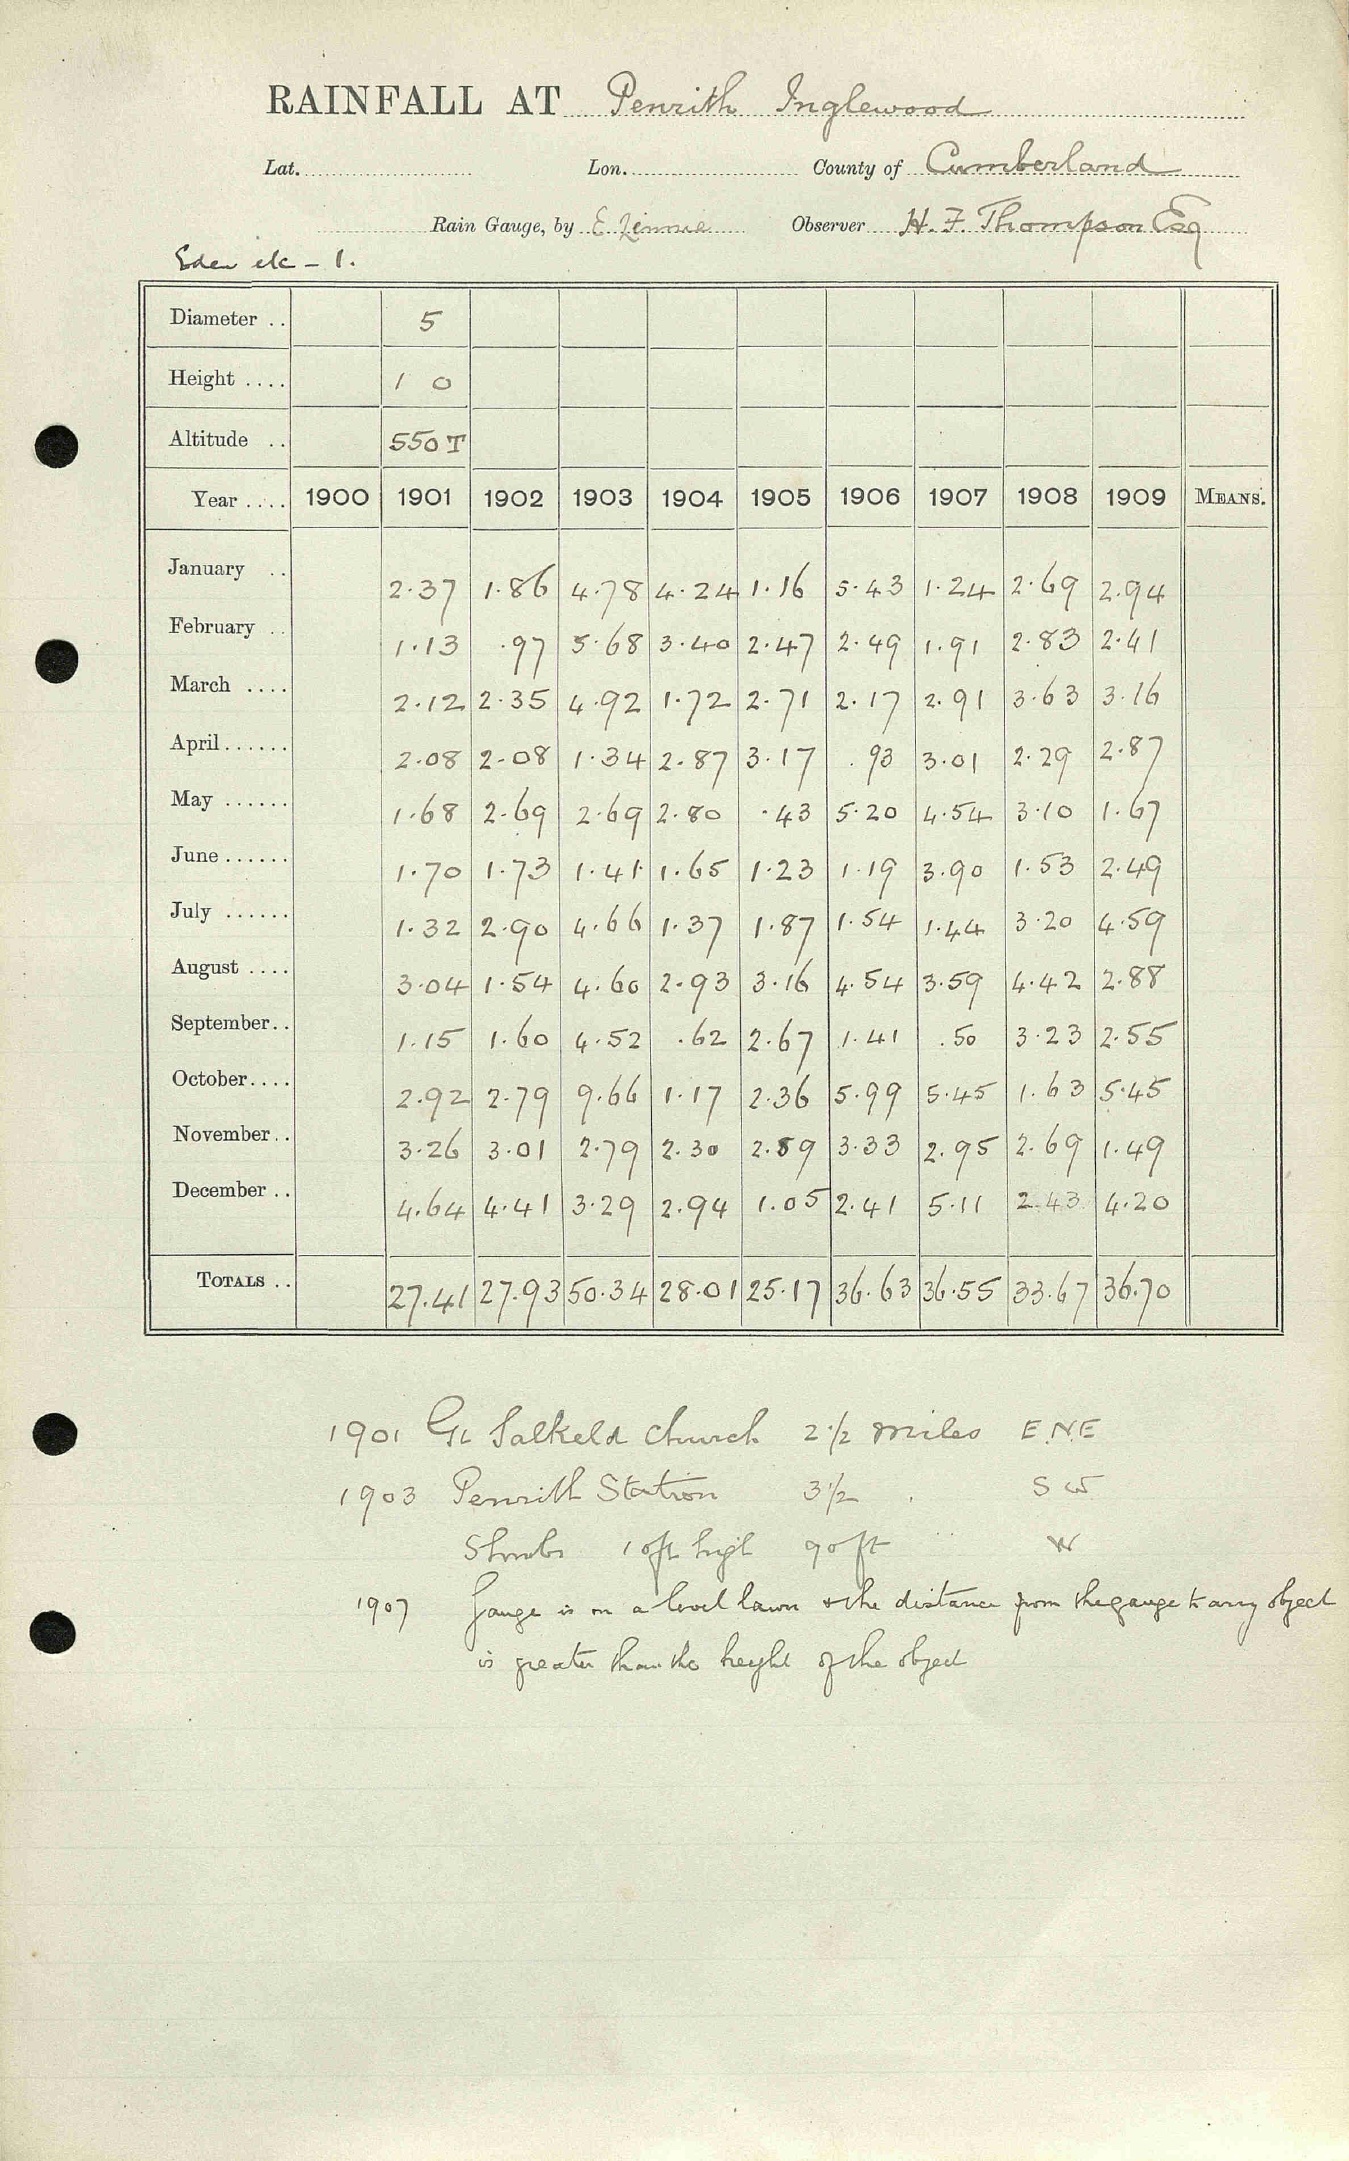 RAINFALL AT Penrith Inglewood
Lat. Lon. County of Cumberland
Rain Gauge, by Observer H. F. Thompson Esq
Eden etc - 1.
Diameter .. 5
Height .... 1 0
Altitude .. 550 T
Year .... 1900 1901 1902 1903 1904 1905 1906 1907 1908 1909 MEANS.
January .. 2.37 1.86 4.78 4.24 1.16 5.43 1.24 2.69 2.94
February .. 1.13 .97 5.68 3.40 2.47 2.49 1.91 2.83 2.41
March .... 2.12 2.35 4.92 1.72 2.71 2.17 2.91 3.63 3.16
April...... 2.08 2.08 1.34 2.87 3.17 .93 3.01 2.29 2.87
May ...... 1.68 2.69 2.69 2.80 .43 5.20 4.54 3.10 1.67
June...... 1.70 1.73 1.41 1.65 1.23 1.19 3.90 1.53 2.49
July ...... 1.32 2.90 4.66 1.37 1.87 1.54 1.44 3.20 4.59
August .... 3.04 1.54 4.60 2.93 3.16 4.54 3.59 4.42 2.88
September.. 1.15 1.60 4.52 .62 2.67 1.41 .50 3.23 2.55
October.... 2.92 2.79 9.66 1.17 2.36 5.99 5.45 1.63 5.45
November.. 3.26 3.01 2.79 2.30 2.89 3.33 2.95 2.69 1.49
December .. 4.64 4.41 3.29 2.94 1.05 2.41 5.11 2.43 4.20
TOTALS .. 27.41 27.93 50.34 28.01 25.17 36.63 36.55 33.67 36.70
1901 Gt Salkeld Church 2 1/2 miles E.N.E
1903 Penrith Station 3 1/2 " S W
Shrubs 10ft high 90 ft " W
1907 Gauge is on a level lawn & the distance from the gauge to any object
is greater than the height of the object